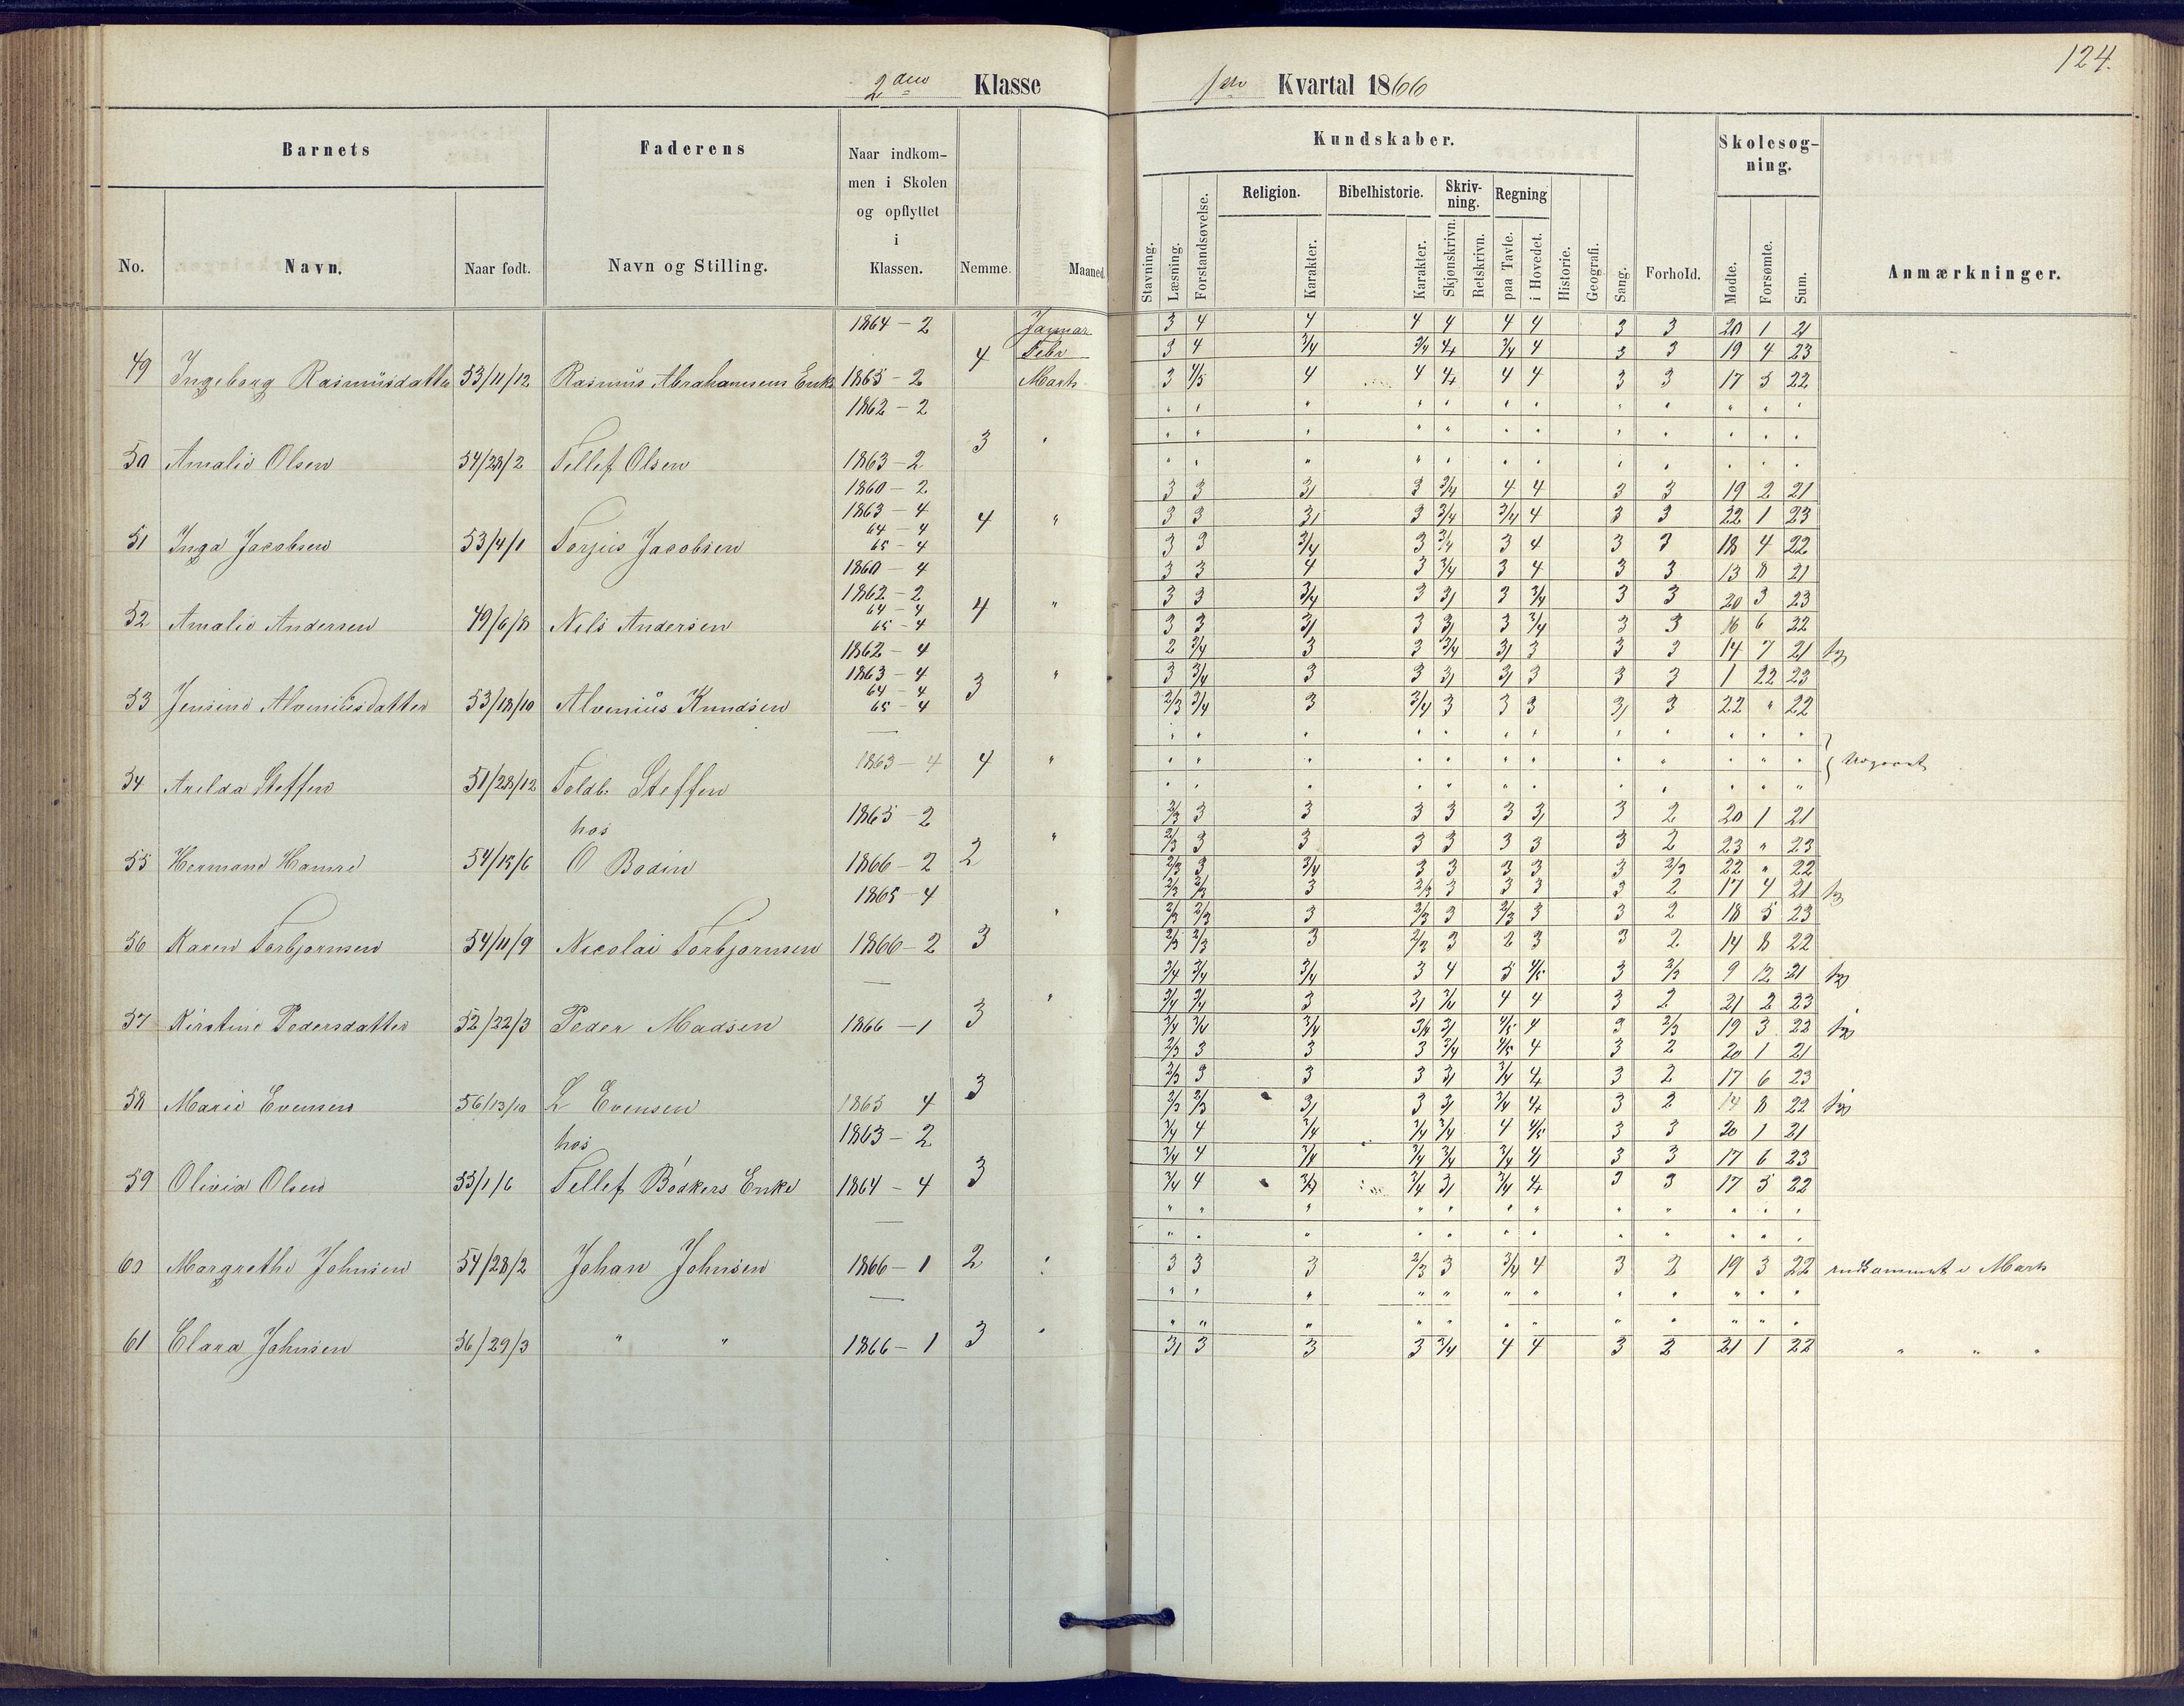 124.
2den Klasse
1ste Kvartal 1866
Barnets
Faderens
Naar indkom-
men i Skolen
og opflyttet
i
Klassen.
No.
Navn.
Naar født.
Navn og Stilling.
Nemme.
Maaned.
Kundskaber.
Skolesøg-
ning.
Religion.
Bibelhistorie.
Skriv-
ning.
Regning
Stavning.
Læsning.
Forstandsøvelse.
Karakter.
Karakter.
Skjønskrivn.
Retskrivn.
paa Tavle.
i Hovedet.
Historie.
Geografi.
Sang.
Forhold.
Mødte.
Forsømte.
Sum.
Anmærkninger.
1864 - 2 Januar 3 4 4 4 4 4 4 3 3 20 1 21
4 Febr 3 4 3/4 3/4 4 3/4 4 3 3 19 4 23
49 Ingeborg Rasmusdatter 53/11/12 Rasmus Abrahamsens Enke 1865 - 2 Marts 3 4/5 4 4 4 4 4 3 3 17 5 22
1862 - 2
3
50 Amalie Olsen 54/28/2 Tellef Olsen 1863 - 2
1860 - 2 3 3 3 3 3/4 4 4 3 3 19 2 21
1863 - 4
64 - 4 4 " 3 3 3 3 3/4 3/4 4 3 3 22 1 23
51 Inga Jacobsen 53/4/1 Torjus Jacobsen 65 - 4 3 3 3/4 3 3/4 3 4 3 3 18 4 22
1860 - 4 3 3 4 3 3/4 3 4 3 3 13 8 21
1862 - 2
64 - 4 4 " 3 3 3/4 3 3 3 3/4 3 3 20 3 23
52 Amalie Andersen 49/6/8 Nils Andersen 65 - 4 3 3 3 3 3 3 3/4 3 3 16 6 22
1862 - 4 2 3/4 3 3 3/4 3 3 3 3 14 7 21
1863 - 4
64 - 4 3 " 3 3/4 3 3 3 3 3 3 3 1 22 23
53 Jensine Alveniusdatter 53/18/10 Alvenius Knudsen 65 - 4 2/3 3/4 3 3/4 3 3 3 3 3 22 " 22
1863 - 4 4 "
54 Arilda Steffen 51/28/12 Toldb. Steffen
1865 - 2 2/3 3 3 3 3 3 3 3 2 20 1 21
hos " 2/3 3 3 3 3 3 3 3 2 23 " 23
55 Hermane Hamre 54/15/6 O Bodin 1866 - 2 2 2/3 3 3/4 3 3 3 3 3 2/3 22 " 22
1865 - 4 2/3 2/3 3 2/3 3 3 3 3 2 17 4 21
" 2/3 2/3 3 2/3 3 2/3 3 3 2 18 5 23
56 Karen Torbjørnsen 54/11/9 Nicolai Torbjørnsen 1866 - 2 3 2/3 2/3 3 2/3 3 2 3 3 2 14 8 22
3/4 3/4 3/4 3 4 5 4/5 3 2/3 9 12 21
" 3/4 3/4 3 3 3/4 4 4 3 2 21 2 23
57 Kirstine Pedersdatter 52/22/3 Peder Madsen 1866 - 1 3 3/4 3/4 3/4 3/4 3 4/5 4 3 2/3 19 3 22
2/3 3 3 3 3/4 4/5 4 3 2 20 1 21
3 2/3 3 3 3 3 3/4 4 3 2 17 6 23
58 Marie Evensen 56/13/10 L Evensen 1865 4 2/3 2/3 3 3 3 3/4 4 3 2 14 8 22
hos 1863 - 2 3/4 4 3/4 3/4 3/4 4 4/5 3 3 20 1 21
3/4 4 3/4 3/4 3/4 3/4 4 3 3 17 6 23
59 Olivia Olsen 55/1/6 Tellef Bødkers Enke 1864 - 4 3 3/4 4 3/4 3/4 3 3/4 4 3 3 17 5 22
60 Margrethe Johnsen 54/28/2 Johan Johnsen 1866 - 1 2 3 3 3 2/3 3 3/4 4 3 2 19 3 22 indkommet i Marts
61 Clara Johnsen 56/29/3 " " 1866 - 1 3 3 3 3 3 3/4 4 4 3 2 21 1 22 " " "